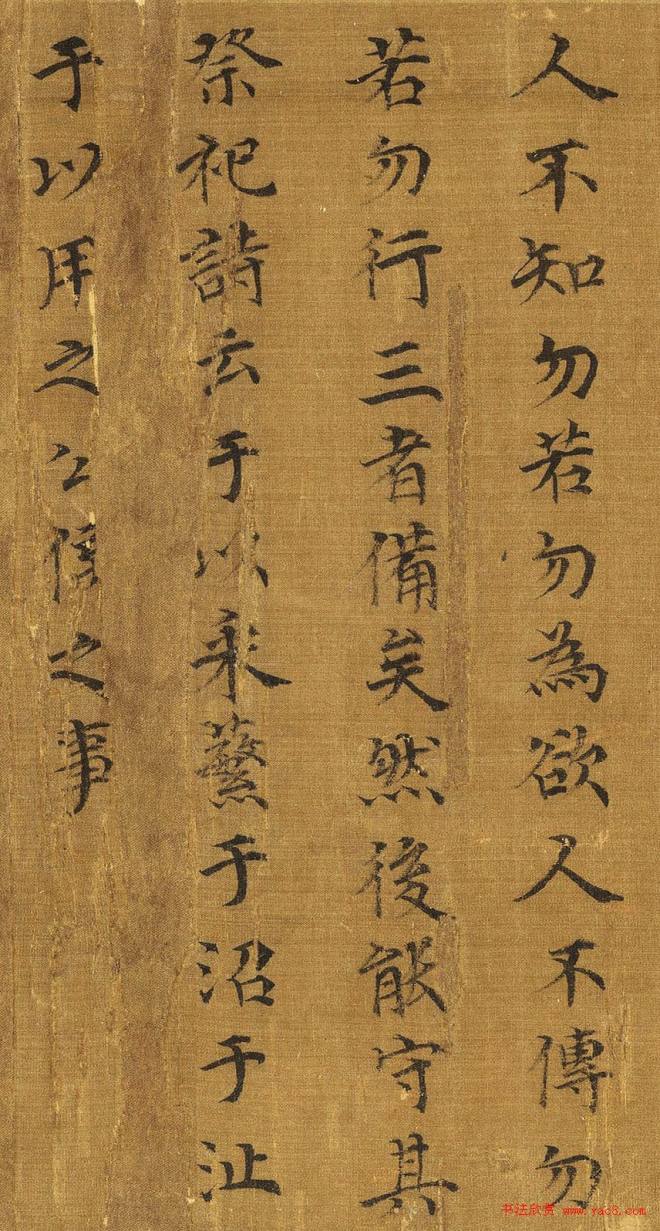 人不知勿若勿為欲人不傳勿
若勿行三者備矣然後能守其
祭祀詩云于以采蘩于沼于沚
于以用之公侯之事
书法欣赏 www.yac8.com